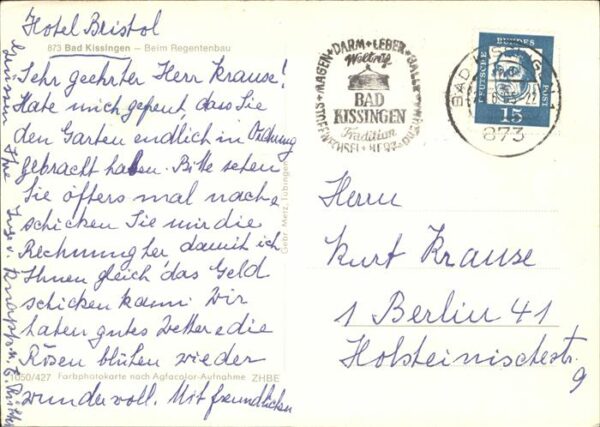 Hotel Bristol
873 Bad Kissingen – Beim Regentenbau
Sehr geehrter Herr Krause!
Hate mich gefreut, dass Sie
den Garten endlich in Ordnung
gebracht haben. Bitte sehen
Sie öfters mal nach e
schicken Sie mir die
Rechnung her damit ich
Ihnen gleich das Geld
schicken kann. Wir
haten gutes Wetter e die
Rosen blühen wieder
wundervoll. Mit freundlichen
Grüssen Ihre Inge v.
1050/427 Farbphotokarte nach Agfacolor-Aufnahme. ZHBE
Gebr. Metz, Tübingen
MAGEN + DARM + LEBER + GALLE
STOFFWECHSEL + HERZ
Weltruf
BAD
KISSINGEN
Tradition
BAD KISSINGEN
873
DEUTSCHE BUNDESPOST
15
Herrn
Kurt Krause
1 Berlin 41
Holsteinischestr.
9